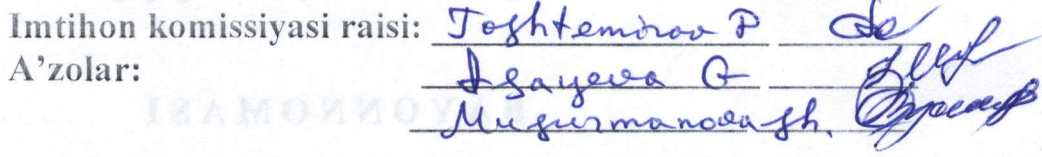 Imtihon komissiyasi raisi: Toshtemirov P
A’zolar: Isayeva G
Mugurmanova Sh.
BAYONNOMASI